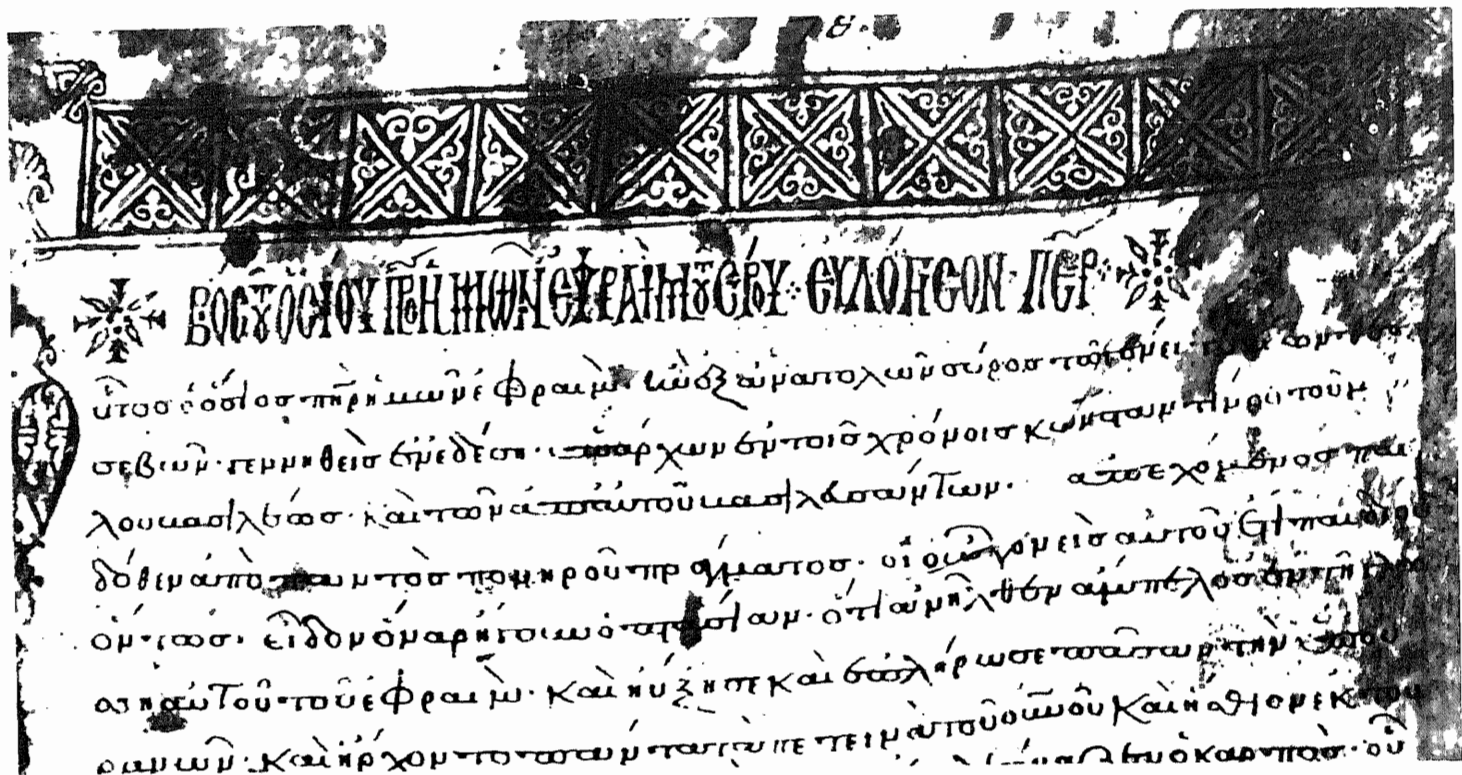 ΒΟС ΤΟΥ ΟСΙΟΥ ΠΡС ΗΜΩΝ ΕΦΡΑΙΜ ΤΟΥ СΥΡΟΥ· ΕΥΛΟΓΗСΟΝ· ΠΕΡ
οὗτος ὁ ὅσιος πηρ ἡμῶν ἐφραὶμ· ἐξ ἀνατολῶν σύρος τῶ γένει·
σεβῶν· γεννηθεὶς ἐν ἐδέση· ὑπάρχων ἐν τοῖς χρόνοις κωνσταντίνου τοῦ μ
λου βασιλέως· καὶ τῶν ἀπ αὐτοῦ βασιλευσάντων· ἀπεχόμενος παι
δόθεν ἀπὸ παντὸς πονηροῦ πράγματος· οἱ οὖν γονεῖς αὐτοῦ ἔτι παιδίου
ὄντος· εἶδον ὄναρ ἤτοι ὀπτασίαν· ὅτι ἀνῆλθεν ἄμπελος ἐν τῆ
ση αὐτοῦ τοῦ ἐφραὶμ· καὶ ηὔξησε καὶ ἐπλήρωσε πᾶσαν τὴν ὑπ οὐ
ρανῶν· καὶ ἤρχοντο πάντα τὰ πετεινὰ τοῦ οὐνοῦ καὶ ἤσθιον ἐκ τοῦ